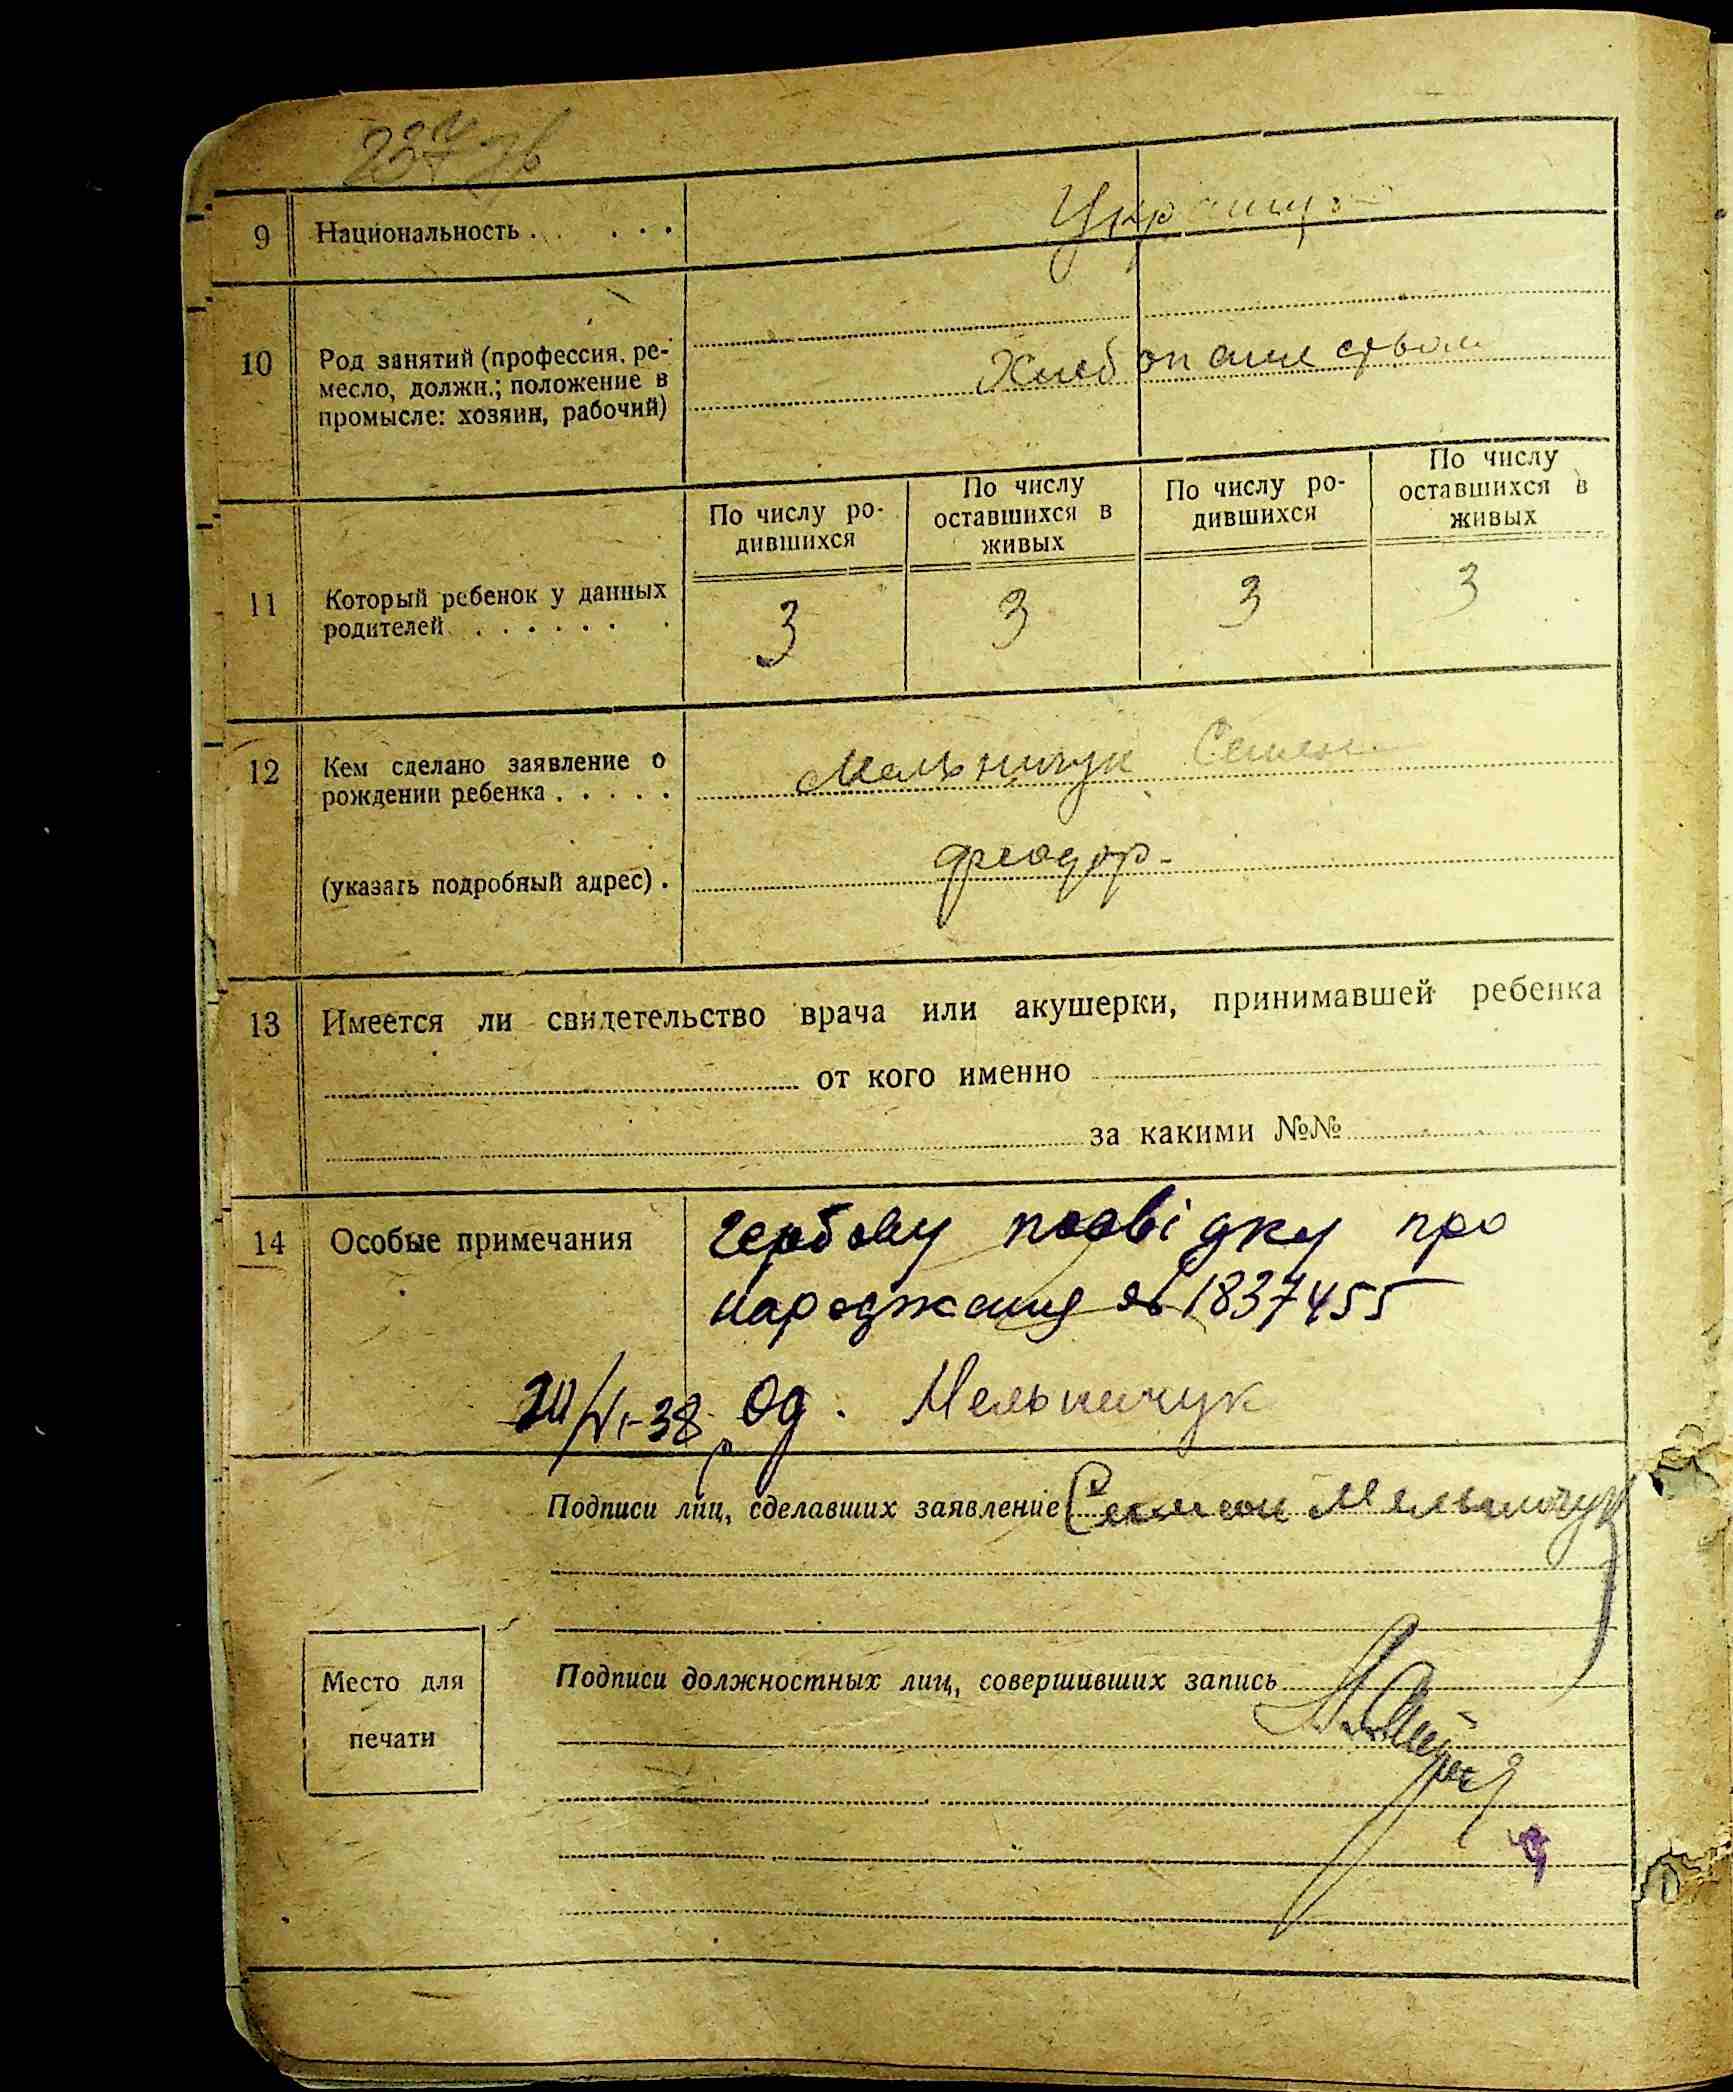 9 Национальность . . . . . Украин
10 Род занятий (профессия, ре-
месло, должн.; положение в
промысле: хозяин, рабочий)
Хлебопашеством
По числу ро-
дившихся
По числу
оставшихся в
живых
По числу ро-
дившихся
По числу
оставшихся в
живых
11 Который ребенок у данных
родителей . . . . . . .
3 3 3 3
12 Кем сделано заявление о
рождении ребенка . . . . .
Мельничук Семен
(указать подробный адрес) .
Феодор-
13 Имеется ли свидетельство врача или акушерки, принимавшей ребенка
от кого именно
за какими №№
14 Особые примечания
Гербову посвідку про
народження № 1837455
20/VI-38 р Од. Мельничук
Подписи лиц, сделавших заявление Семион Мельничук
Место для
печати
Подписи должностных лиц, совершивших запись